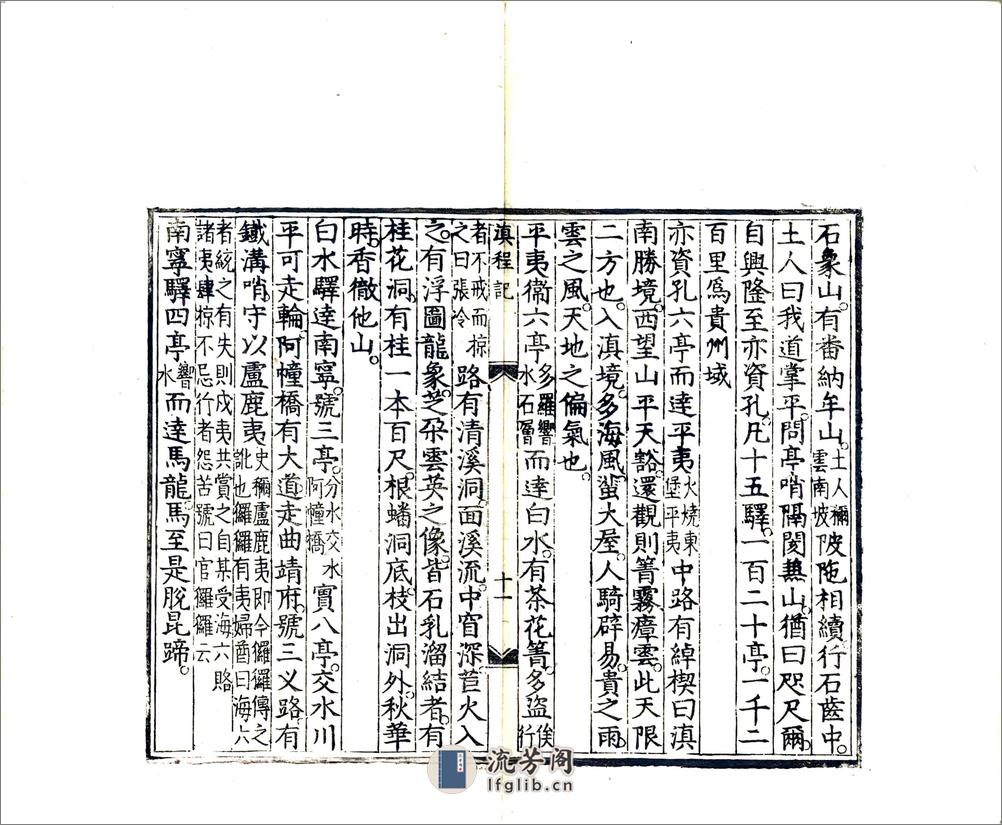 石象山。有番納牟山。土人彌雲南坡陂陁相續行石齒中。
土人曰我道掌平。問亭哨隔閡𤍠山。猶曰咫尺爾。
自興隆至亦資孔。凡十五驛。一百二十亭。一千二
百里爲貴州域
亦資孔六亭而達平夷火燒東堡平夷中路有綽楔曰滇
南勝境。西望山平天豁。還觀則箐霧瘴雲。此天限
二方也。入滇境。多海風。蜚大屋。人騎辟易。貴之雨。
雲之風。天地之偏氣也。
平夷衞六亭多羅響水石㽞而達白水。有茶花箐。多盜俟行
滇程記 十一
者不戒而掠之曰張冷路有清溪洞。面溪流。中窅深。苣火入
之。有浮圖龍象芝朶雲英之像。皆石乳溜結者。有
桂花洞。有桂一本百尺。根蟠洞底。枝出洞外。秋華
時。香徹他山。
白水驛達南寧。號三亭。分水交水阿幢橋實八亭。交水川
平可走輪。阿幢橋有大道走曲靖府。號三乂路。有
鐵溝哨。守以盧鹿夷史稱盧鹿夷即今玀玀傳之訛也玀玀有夷婦酋曰海六
者統之有失則戍夷共賞之自某受海六賂
諸夷肆掠不忌行者怨苦號曰官玀玀云
南寧驛四亭響水而達馬龍。馬至是脫昆蹄。
流芳阁
lfglib.cn